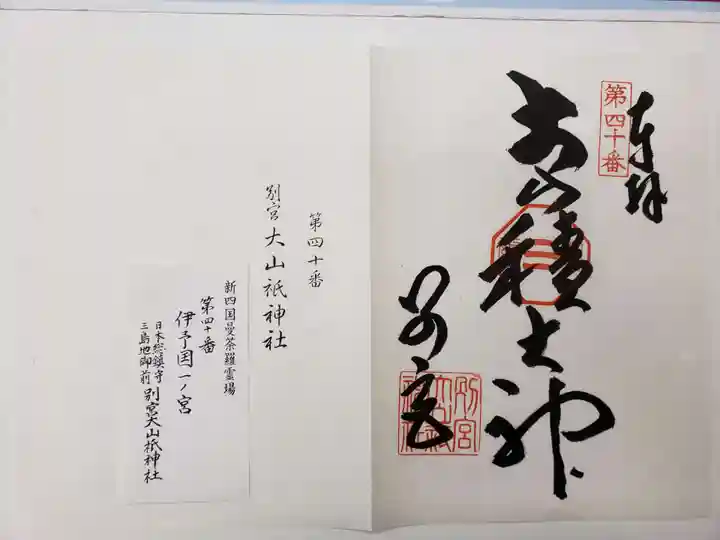 奉拝
第四十番
大山積大神
別宮
第四十番
別宮 大山祇神社
新四国曼荼羅霊場
第四十番
伊予国一ノ宮
日本総鎮守
三島地御前
別宮大山祇神社